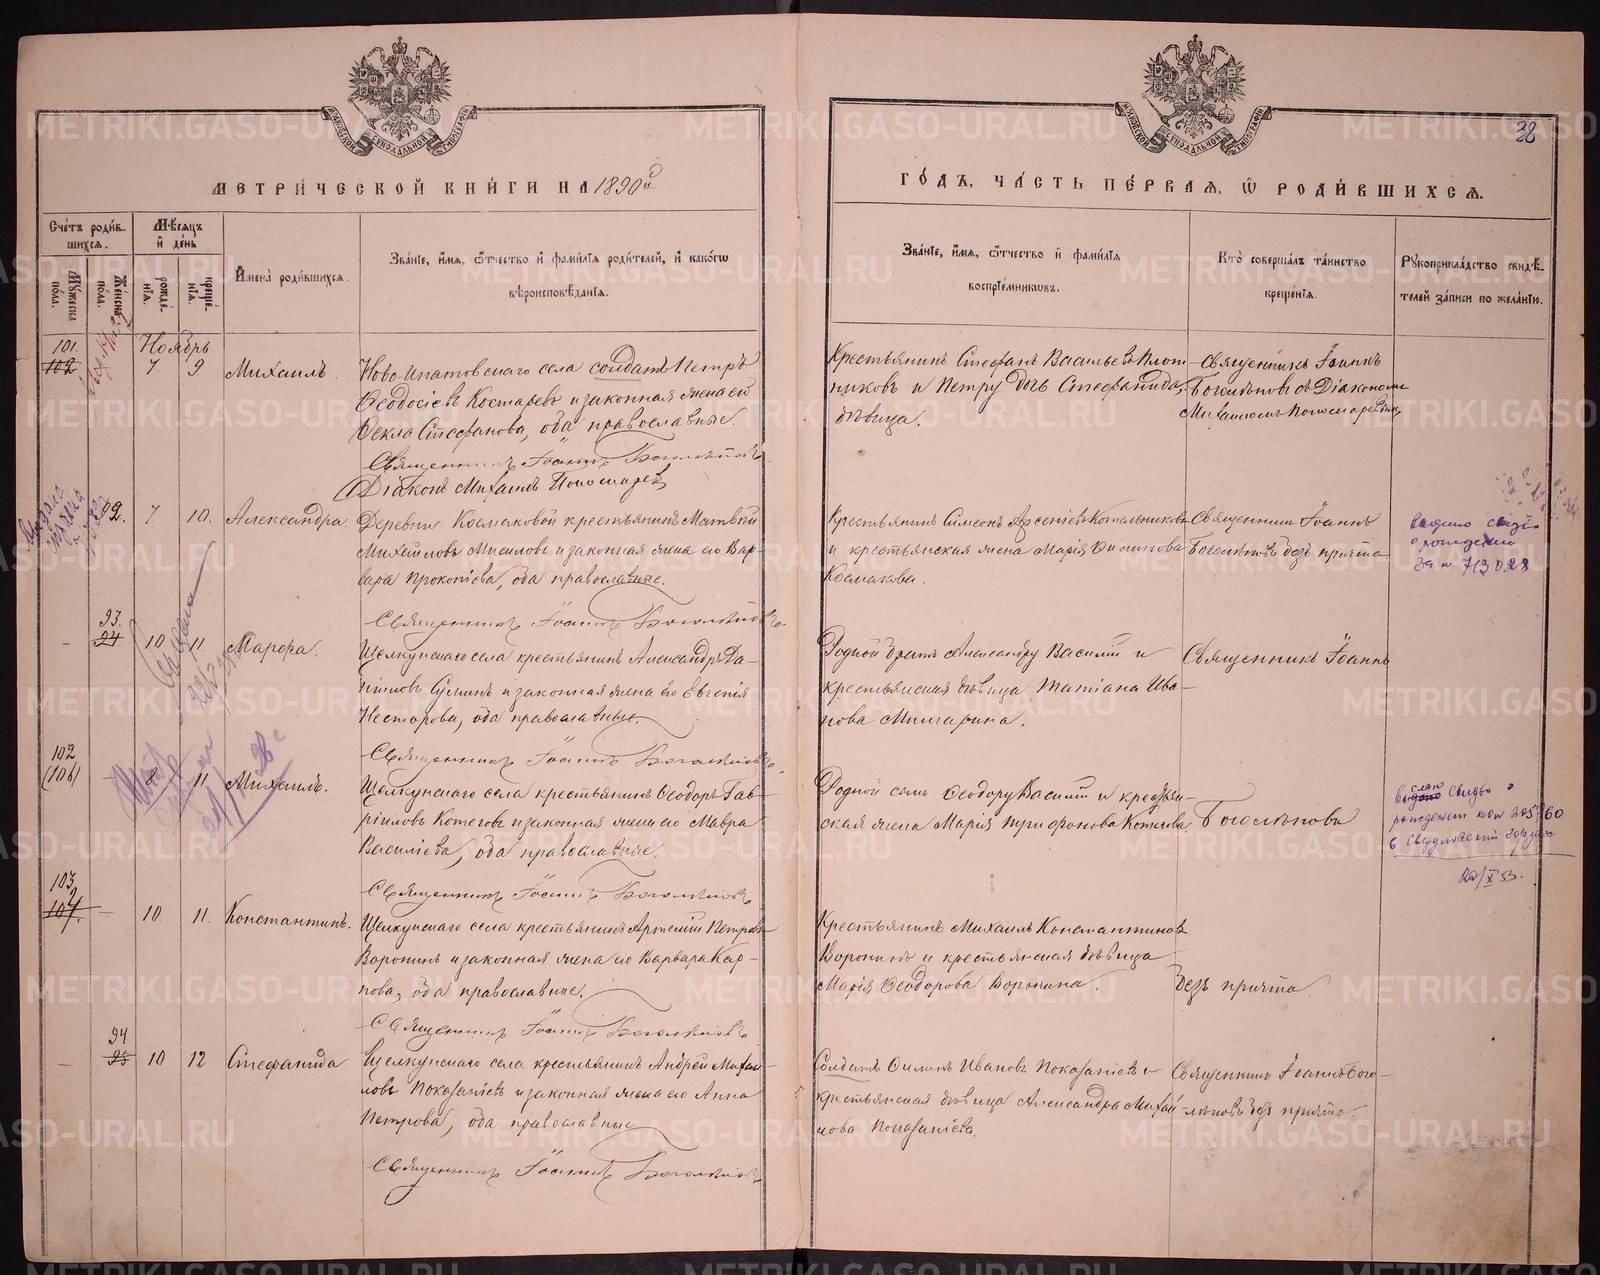 МЕТРИ́ЧЕСКОЙ КНИ́ГИ НА 1890й
ГО́ДЪ, ЧА́СТЬ ПЕ́РВАЯ, Ѿ РОДИ́ВШИХСЯ.
38
Сче́тъ роди́в-
шихся.
Мѣ́сяцъ
и҆ де́нь
Мꙋжеска
по́ла.
Же́нска
по́ла.
рожде́-
нїѧ.
креще́-
нїѧ.
И҆мена̀ роди́вшихся.
Зва́нїе, и҆́мѧ, ѻ҆́тчество и҆ фами́лїѧ роди́телей, и҆ како́гѡ
вѣроисповѣ́данїѧ.
Зва́нїе, и҆́мѧ, ѻ҆́тчество и҆ фами́лїѧ
воспрїе́мниковъ.
Кто̀ соверша́лъ та́инство
креще́нїѧ.
Рꙋкоприкла́дство свидѣ́-
телей за́писи по жела́нїю.
Ноябрь
101.
102
7
9
Михаилъ.
Ново-Ипатовскаго села солдатъ Петръ
Ѳеодосіевъ Костаревъ и законная жена ей
Ѳекла Стефанова, оба православные.
Священникъ Іоаннъ Боголѣповъ
Діаконъ Михаилъ Пономаревъ
Крестьянинъ Стефанъ Васильевъ Плот
никовъ и Петру дочь Стефанида,
дѣвица.
Священникъ Іоаннъ
Боголѣповъ съ Діакономъ
Михаиломъ Пономаревымъ
92.
7
10.
Александра.
Деревни Космаковой крестьянинъ Матвѣй
Михайловъ Мисиловъ и законная жена его Вар-
вара Прокопіева, оба православные.
Священникъ Іоаннъ Боголѣповъ
Крестьянинъ Симеонъ Арсеніевъ Котельниковъ
и крестьянская жена Марія Филиппова
Космакова.
Священникъ Іоаннъ
Боголѣповъ безъ причта
выдано свид.
о рождении
за № 713028
93.
94
10
11
Марфа.
Щелкунскаго села крестьянинъ Александръ Да-
ниловъ Сулинъ и законная жена его Евгенія
Несторова, оба православные.
Священникъ Іоаннъ Боголѣповъ
Родной братъ Александру Василій и
крестьянская дѣвица Татіана Ива-
нова Мишарина.
Священникъ Іоаннъ
102
(106)
8
11
Михаилъ.
Щелкунскаго села крестьянинъ Ѳеодоръ Гав-
ріиловъ Котеговъ и законная жена его Мавра
Василіева, оба православные.
Священникъ Іоаннъ Боголѣповъ
Родной сынъ Ѳеодору Василій и крестьян-
ская жена Марія Трифонова Котегова.
Боголѣповъ
рождении
205760
в Свердловский
22/X 53.
103
104.
10.
11.
Константинъ.
Щелкунскаго села крестьянинъ Артемій Петровъ
Воронинъ и законная жена его Варвара Кар-
пова, оба православные.
Священникъ Іоаннъ Боголѣповъ
Крестьянинъ Михаилъ Константиновъ
Воронинъ и крестьянская дѣвица
Марія Ѳеодорова Воронина.
безъ причта.
94
95
10
12
Стефанида
Щелкунскаго села крестьянинъ Андрей Михаи-
ловъ Показаніевъ и законная жена его Анна
Петрова, оба православные
Священникъ Іоаннъ Боголѣповъ
Солдатъ Филипъ Ивановъ Показаніевъ и
крестьянская дѣвица Александра Михай-
лова Показаніева.
Священникъ Іоаннъ Бого-
лѣповъ безъ причта.
METRIKI.GASO-URAL.RU